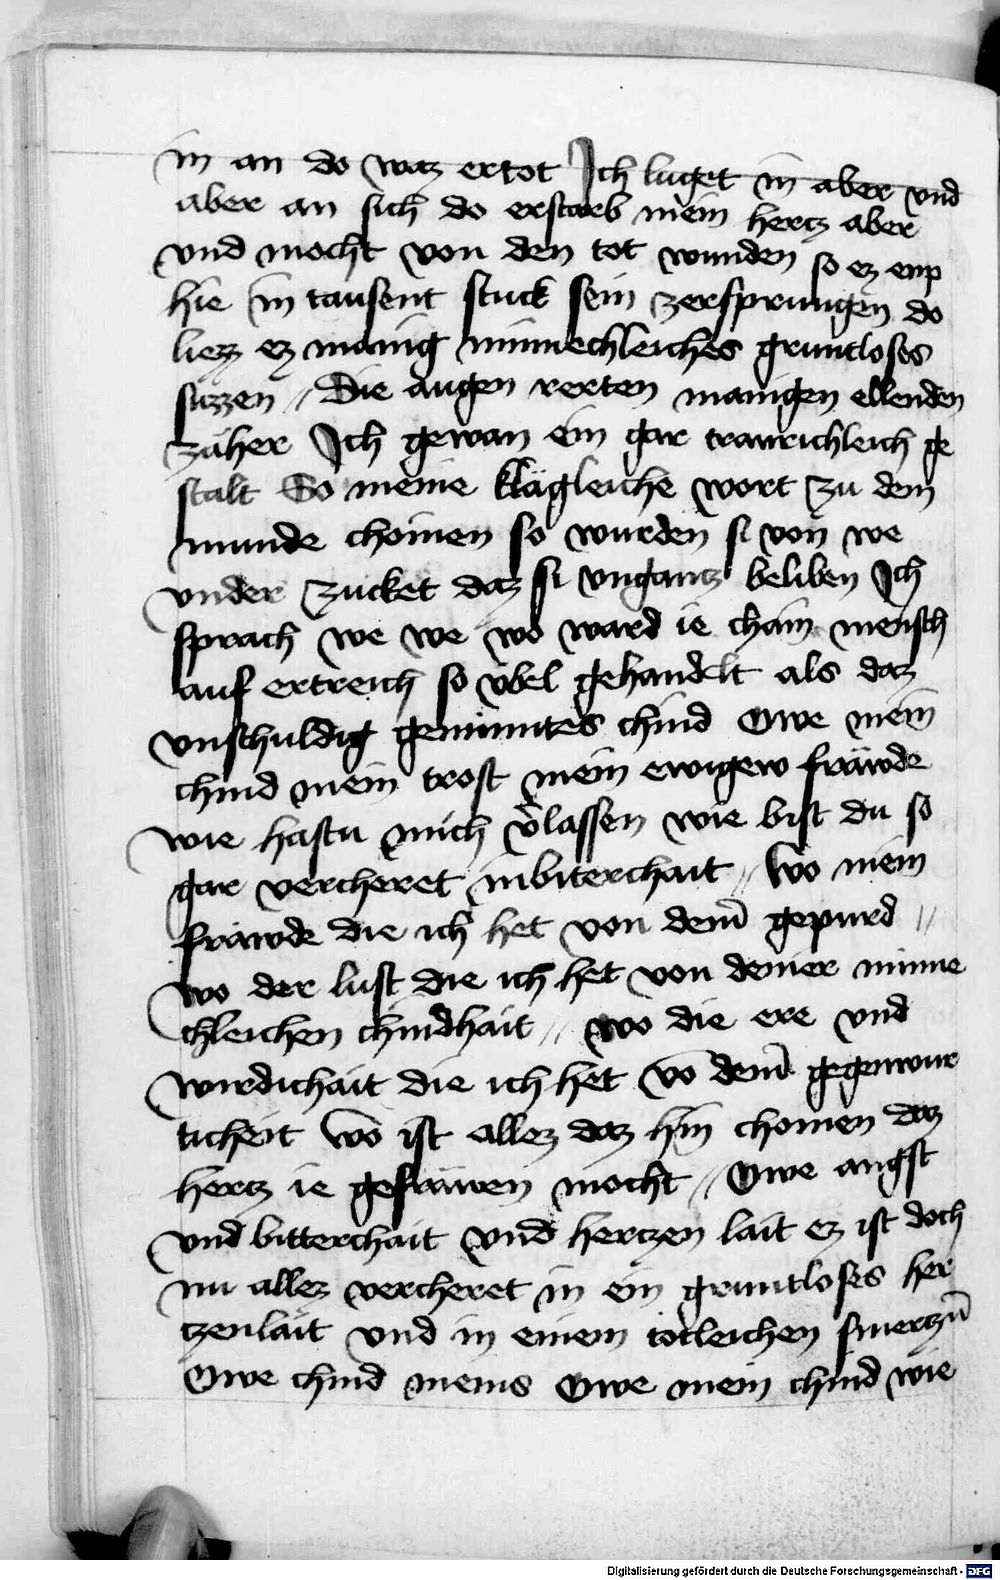 in an do waz ertot Ich luget in aber vnd
aber an sich do erstarb mein hertz aber
vnd mocht von den tot wunden so ez enp
hie in tausent stuck sein zersprungen do
liezz ez manig minnechleiches gruntloses
suzzen // Die augen rerten manigen ellenden
zäher Ich gewan ein gar traurichleich ge
stalt So meine klägleiche wort zu dem
munde chomen so wurden si von we
vnder zucket daz si vngantz beliben Ich
sprach we we wo ward ie chain mensch
auf ertreich so vbel gehandelt als daz
vnschuldig geminntes chind Owe mein
chind mein trost mein ewigew fräwde
wie hastu mich v̾lassen wie bist du so
gar vercheret in biterchait // Wo mein
fräwde die ich het von deiner̄ gepurd //
wo der lust die ich het von deiner minne
chleichen chindhait // wo die ere vnd
wirdichait die ich het vō deiner̄ gegenwur
ticheit Wo ist allez daz hin chomen daz
hertz ie gefräwen mocht // Owe angst
vnd bitterchait vnd hertzen lait ez ist doch
nu allez vercheret in ein gruntloses her
tzenlait vnd in einem totleichen smertzn̄
Owe chind meins Owe mein chind wie
Digitalisierung gefördert durch die Deutsche Forschungsgemeinschaft - DFG